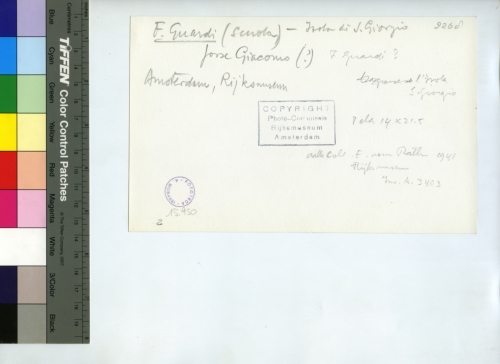 F. Guardi (scuola) – Isola di S. Giorgio 9268
forse Giacomo (?) F Guardi ?
Amsterdam, Rijksmuseum
l'Isola
S. Giorgio
COPYRIGHT
Photo-Commissie
Rijksmuseum
Amsterdam
tela 14 x 21.5
dalla Coll. E. vom Rath 1941
Rijksmuseum
Inv. A. 3403
FOTOTECA
15950
Blue
Cyan
Green
Yellow
Red
Magenta
White
3/Color
Black
TIFFEN Color Control Patches
© The Tiffen Company, 2007
Centimetres